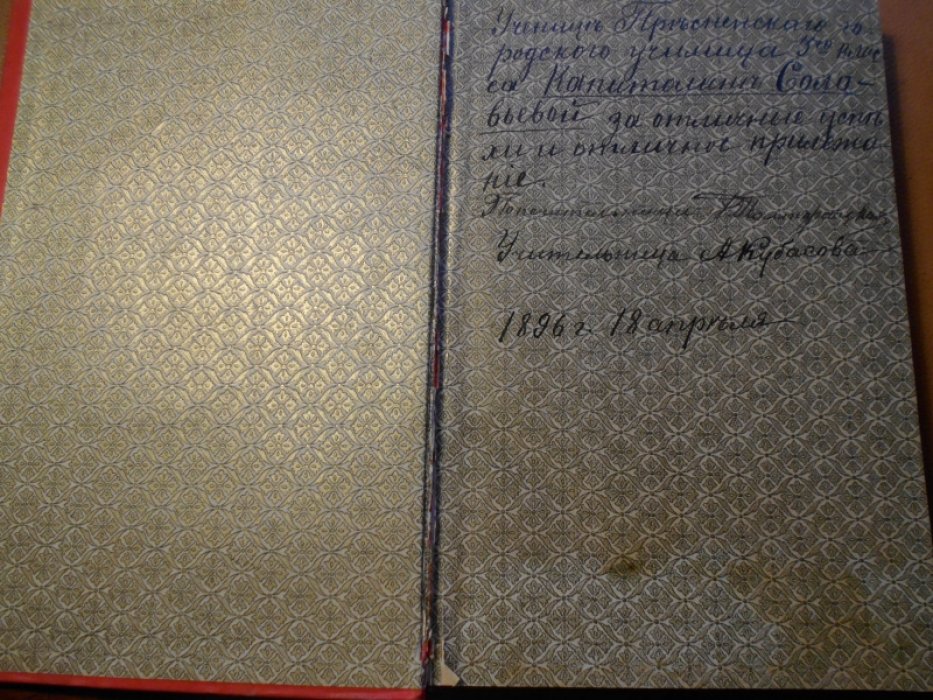 Ученицѣ Прѣсненскаго го-
родского училища 3го клас-
са Капиталинѣ Соло-
вьевой за отличные успѣ-
хи и отличное прилежа-
ніе.
Попечительница
Учительница А Кубасова
1896 г. 18 апрѣля